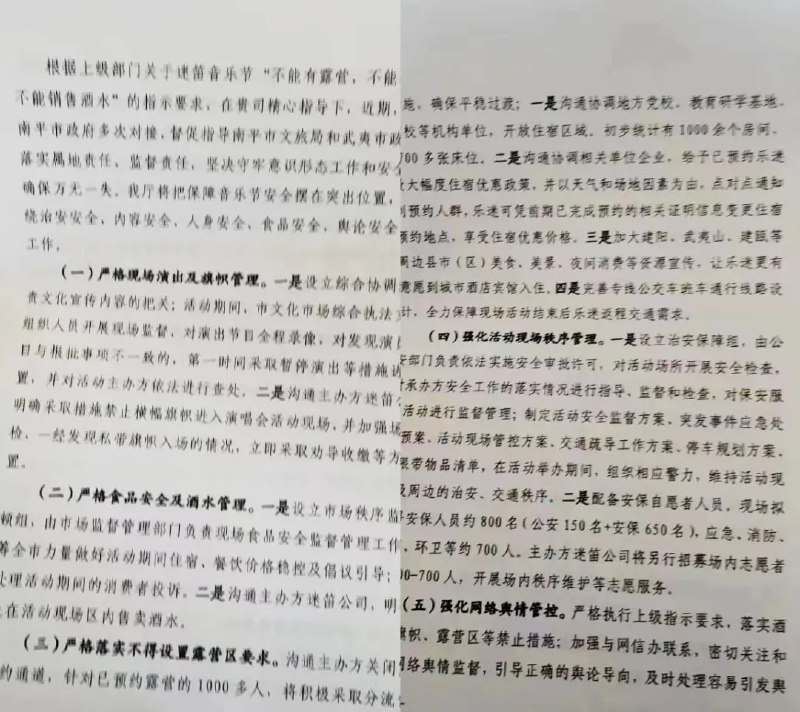 根据上级部门关于迷笛音乐节“不能有露营，不能
不能销售酒水”的指示要求，在贵司精心指导下，近期，
南平市政府多次对接，督促指导南平市文旅局和武夷市政
落实属地责任、监督责任，坚决守牢意识形态工作和安全
确保万无一失。我厅将把保障音乐节安全摆在突出位置，
绕治安安全、内容安全、人身安全、食品安全、舆论安全
工作。
（一）严格现场演出及旗帜管理。一是设立综合协调
责文化宣传内容的把关；活动期间，市文化市场综合执法
组织人员开展现场监督，对演出节目全程录像，对发现演
目与报批事项不一致的，第一时间采取暂停演出等措施
置，并对活动主办方依法进行查处。二是沟通主办方迷笛
明确采取措施禁止横幅旗帜进入演唱会活动现场，并加强场
检，一经发现私带旗帜入场的情况，立即采取劝导收缴等方
置。
（二）严格食品安全及酒水管理。一是设立市场秩序监
顿组，由市场监督管理部门负责现场食品安全监督管理工作
筹全市力量做好活动期间住宿、餐饮价格稳控及倡议引导；
处理活动期间的消费者投诉。二是沟通主办方迷笛公司，明
止在活动现场区内售卖酒水。
（三）严格落实不得设置露营区要求。沟通主办方关闭
约通道，针对已预约露营的1000多人，将积极采取分流
施，确保平稳过渡；一是沟通协调地方党校、教育研学基地、
校等机构单位，开放住宿区域。初步统计有1000余个房间、
700多张床位。二是沟通协调相关单位企业，给予已预约乐迷
大幅度住宿优惠政策，并以天气和场地因素为由，点对点通知
到预约人群，乐迷可凭前期已完成预约的相关证明信息变更住宿
预约地点，享受住宿优惠价格。三是加大建阳、武夷山、建瓯等
周边县市（区）美食、美景、夜间消费等资源宣传，让乐迷更有
意愿到城市酒店宾馆入住。四是完善专线公交车班车通行线路设
计，全力保障现场活动结束后乐迷返程交通需求。
（四）强化活动现场秩序管理。一是设立治安保障组，由公
安部门负责依法实施安全审批许可，对活动场所开展安全检查，
对承办方安全工作的落实情况进行指导、监督和检查，对保安服
活动进行监督管理；制定活动安全监督方案、突发事件应急处
预案、活动现场管控方案、交通疏导工作方案、停车规划方案、
限带物品清单，在活动举办期间，组织相应警力，维持活动现
及周边的治安、交通秩序。二是配备安保自愿者人员。现场拟
安保人员约800名（公安150名+安保650名），应急、消防、
、环卫等约700人。主办方迷笛公司将另行招募场内志愿者
00-700人，开展场内秩序维护等志愿服务。
（五）强化网络舆情管控。严格执行上级指示要求，落实酒
旗帜、露营区等禁止措施；加强与网信办联系，密切关注和
网络舆情监督，引导正确的舆论导向，及时处理容易引发舆